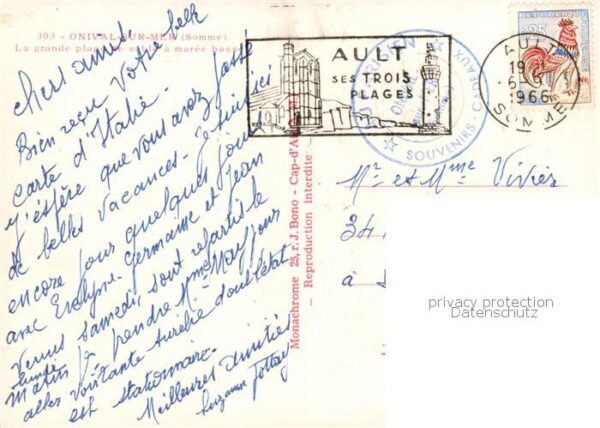 303 - ONIVAL-SUR-MER (Somme)
La grande plage de sable à marée basse
Chers amis,
Bien reçu votre belle
carte d'Italie.
J'espère que vous avez passé
de belles vacances - Je suis ici
encore pour quelques jours
avec Evelyne. Germaine et Jean
Venus samedi, sont repartis le
lundi
matin pour prendre Mme May pour
aller voir tante Aurélie dont l'état
est stationnaire.
Meilleures amitiés
Suzanne
AULT
SES TROIS
PLAGES
SOUVENIRS - CADEAUX
AULT
19
6
1966
SOMME
0,25
Monachrome 25, r. J. Bono - Cap-d'Ail
Reproduction interdite
Mr et Mme Vivier
34
à
privacy protection
Datenschutz